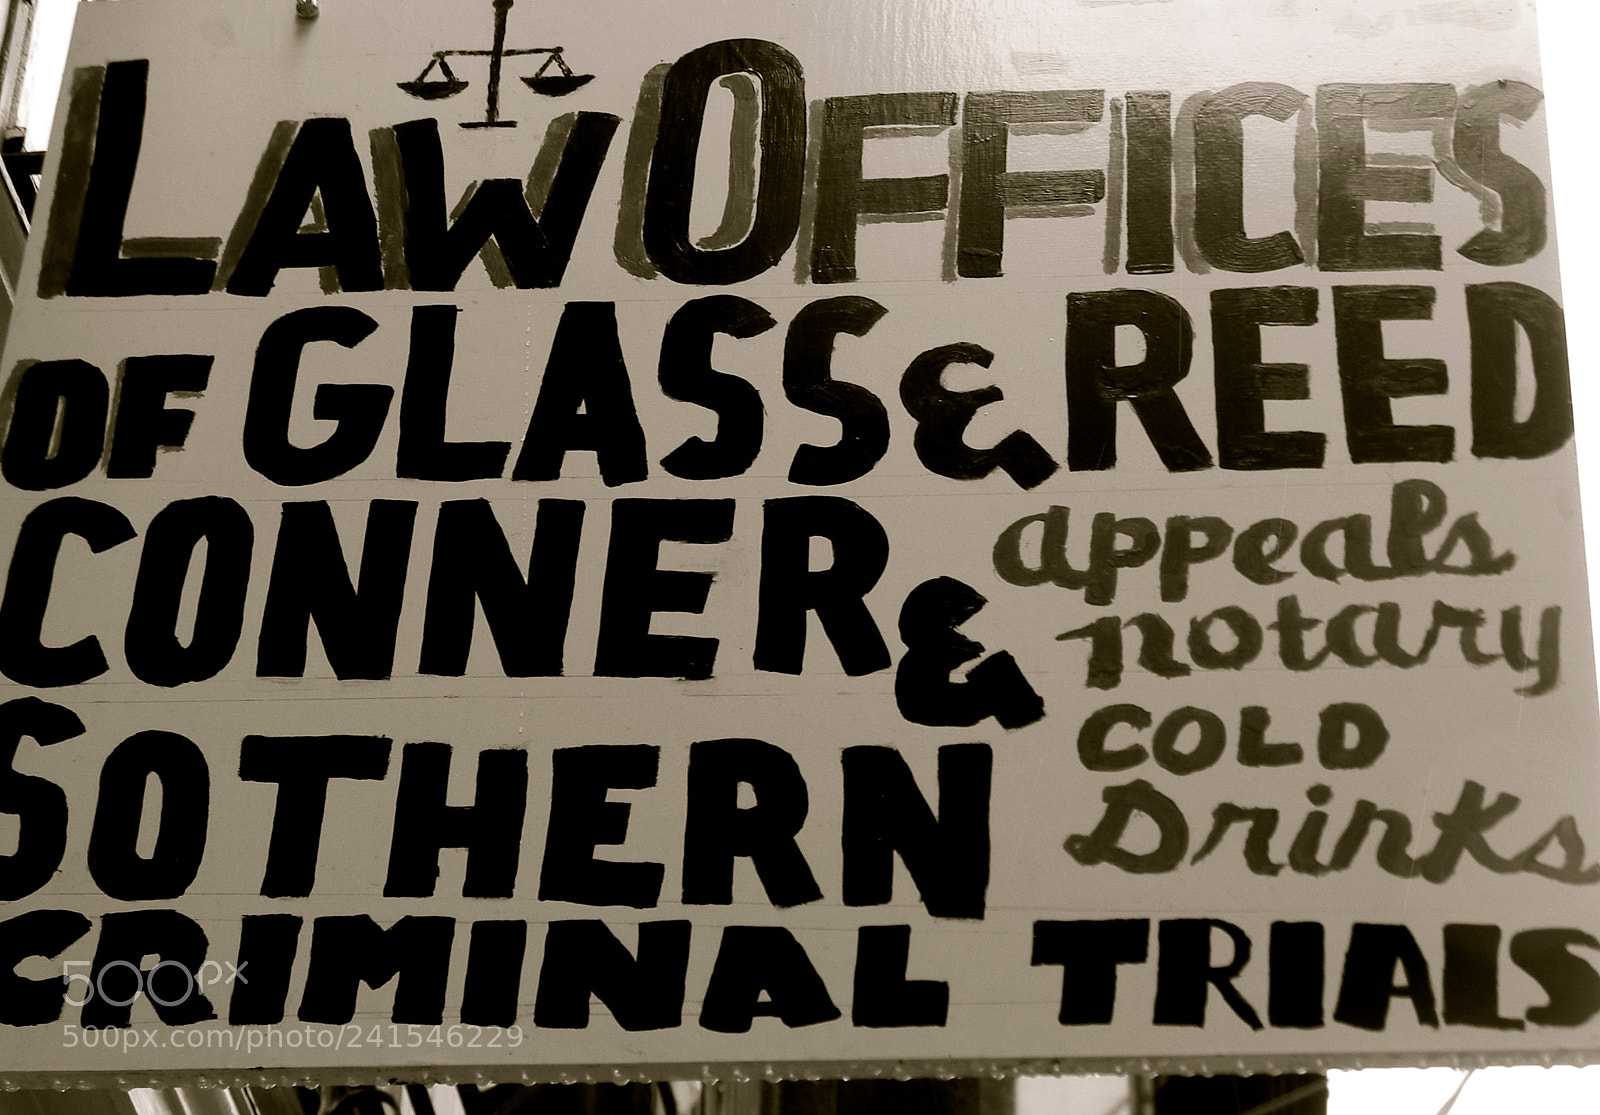 LAW OFFICES
OF GLASS & REED
CONNER &
SOTHERN
appeals
notary
COLD
Drinks
CRIMINAL TRIALS
500px
500px.com/photo/241546229